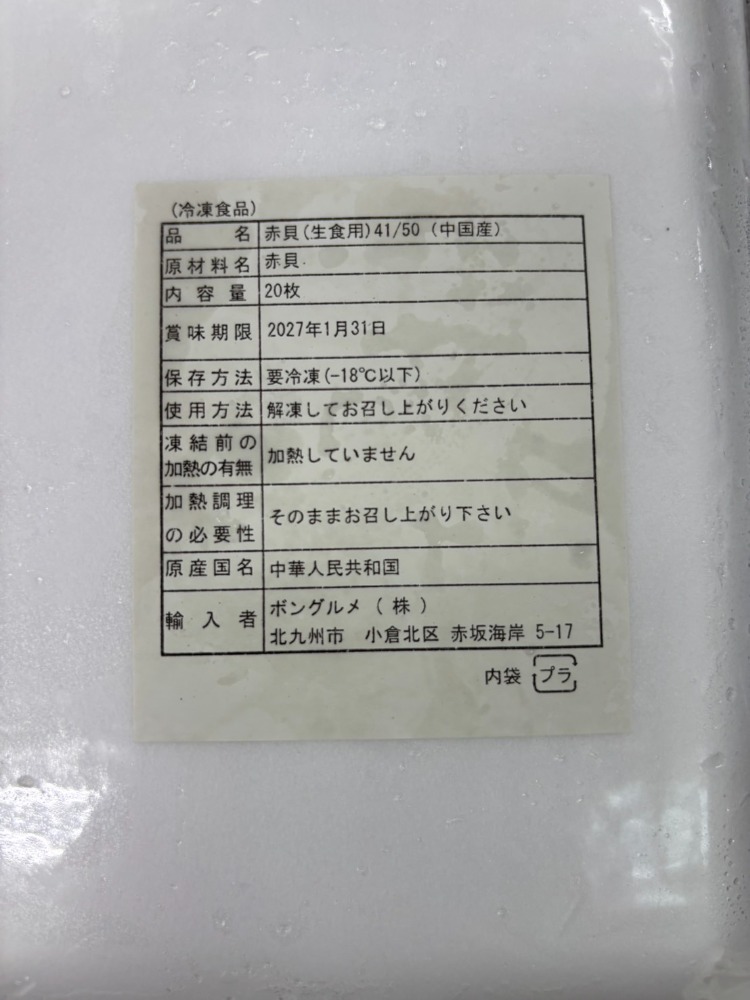 (冷凍食品)
品名 赤貝(生食用)41/50 (中国産)
原材料名 赤貝
内容量 20枚
賞味期限 2027年1月31日
保存方法 要冷凍(-18℃以下)
使用方法 解凍してお召し上がりください
凍結前の
加熱の有無 加熱していません
加熱調理
の必要性 そのままお召し上がり下さい
原産国名 中華人民共和国
輸入者 ボングルメ(株)
北九州市 小倉北区 赤坂海岸 5-17
内袋 プラ